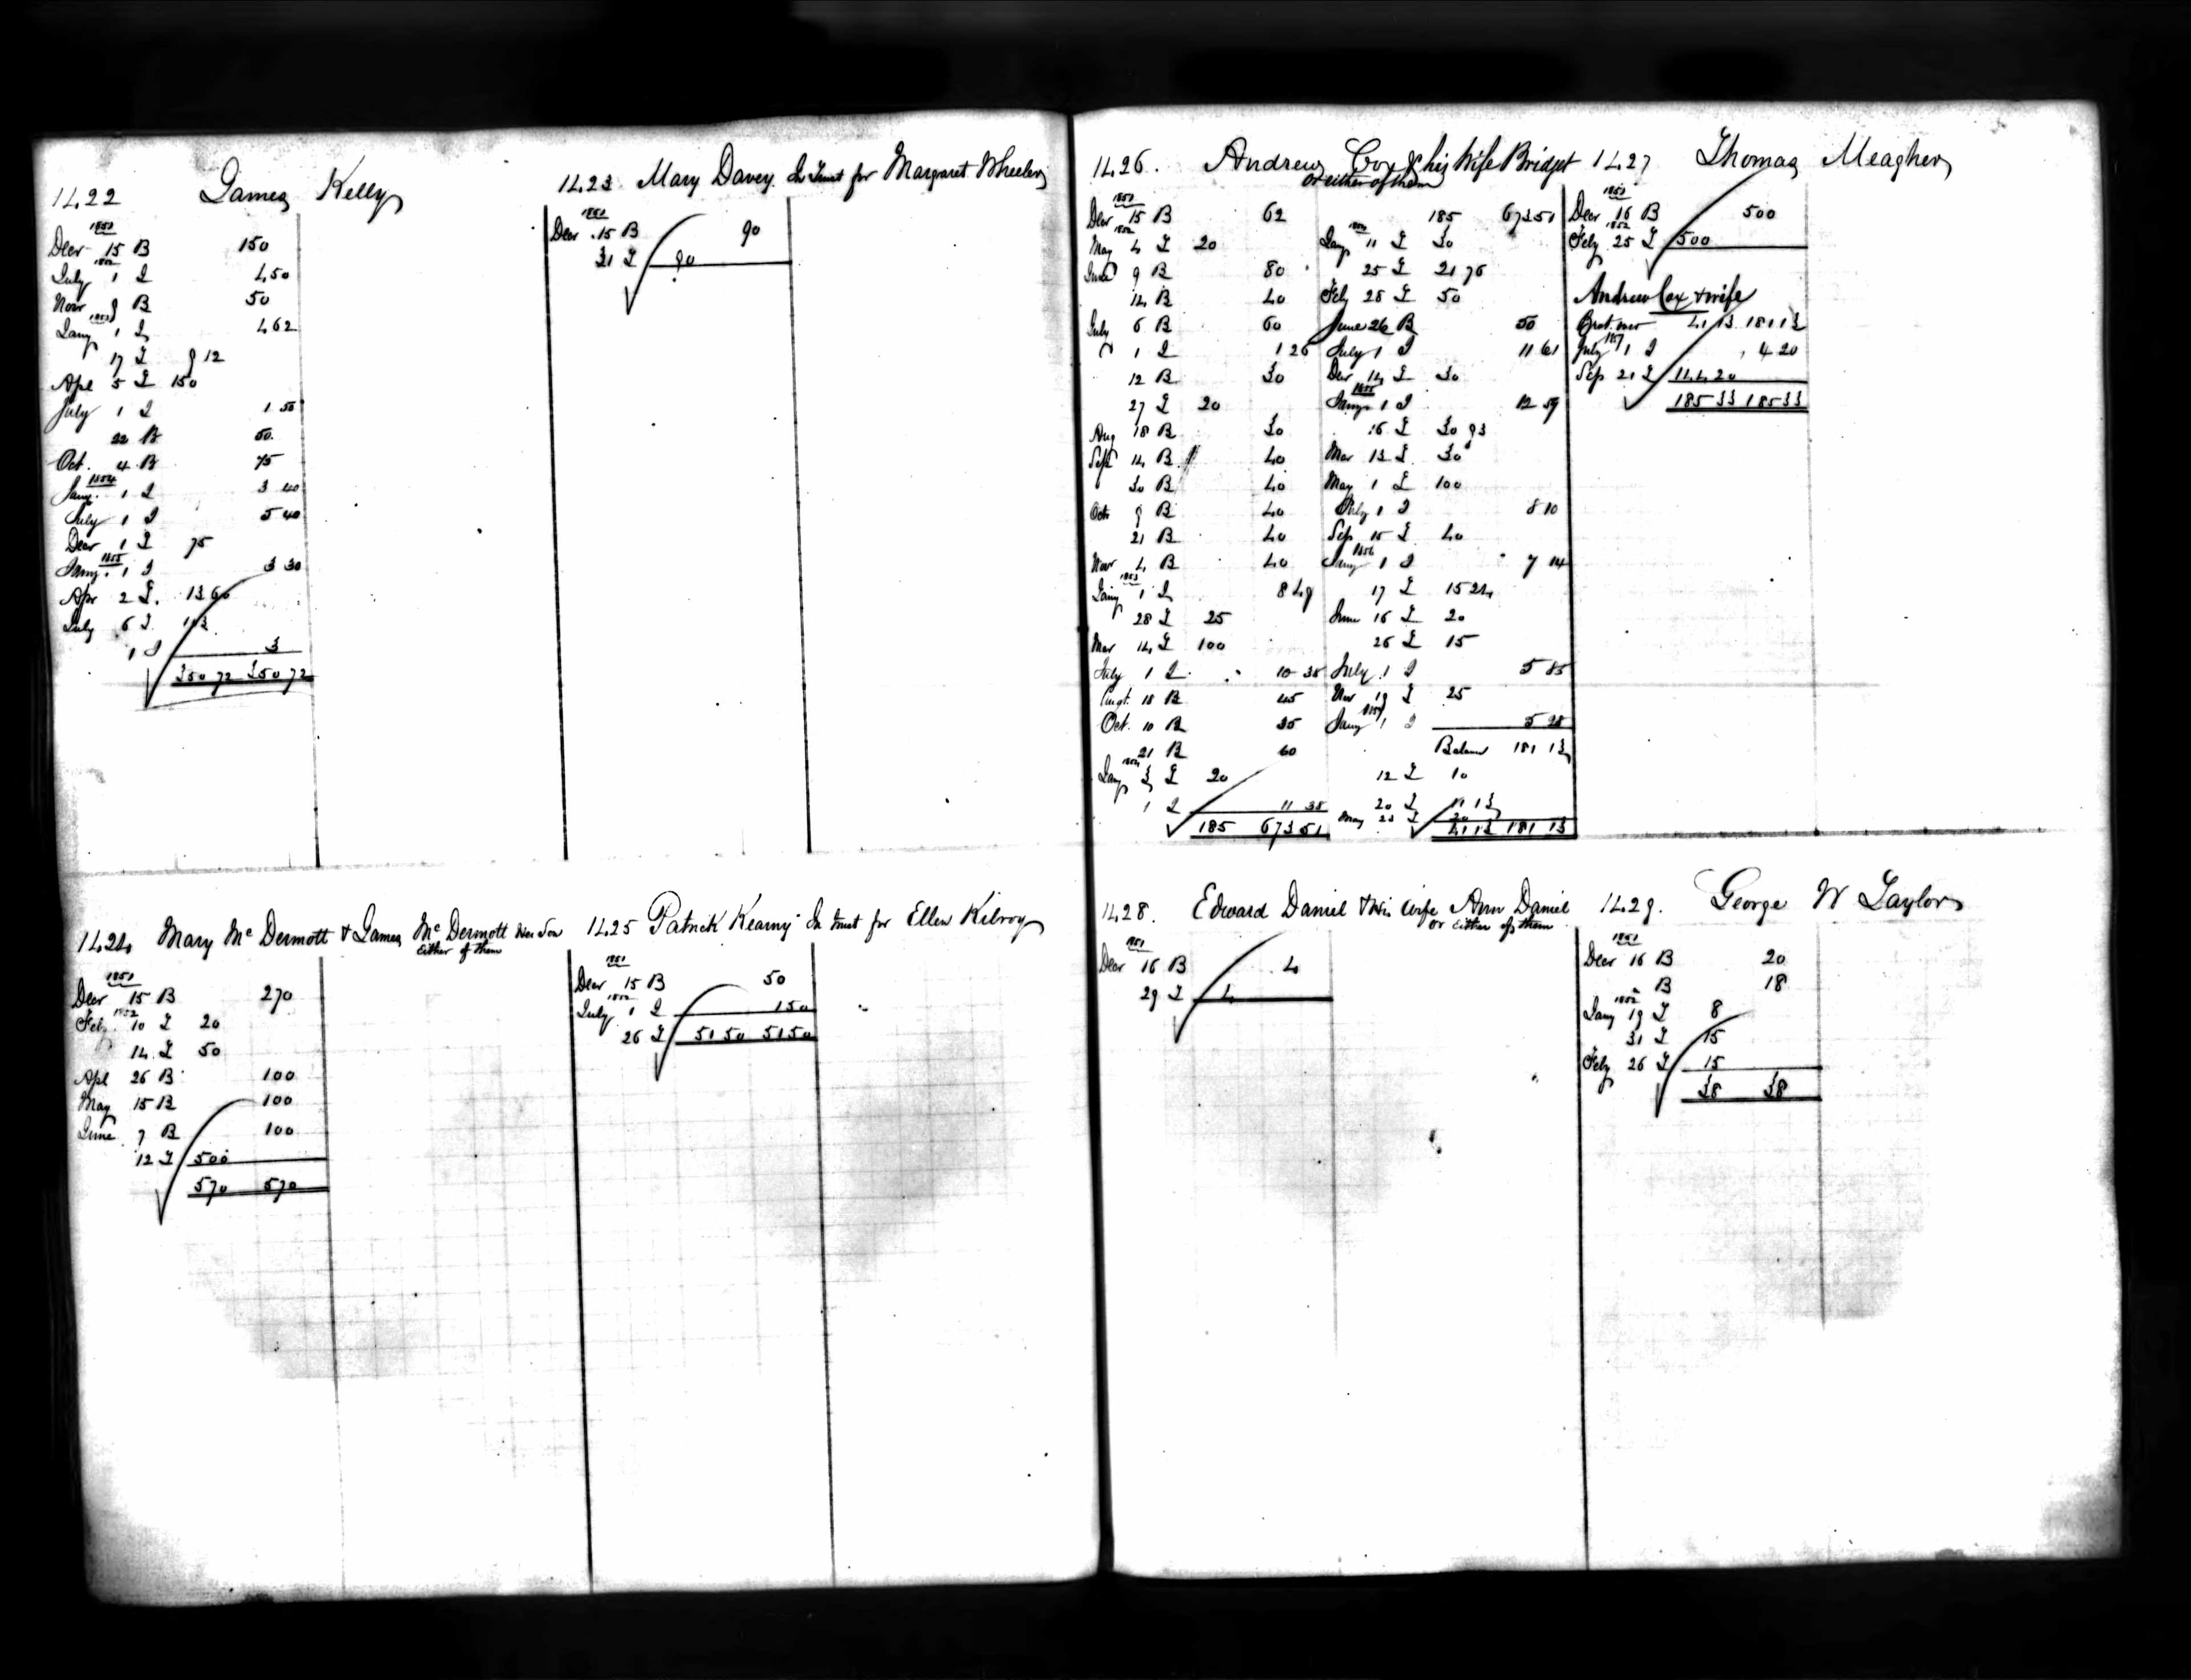 1422 James Kelly
1851
Decr 15 B 150
1852
July 1 I 4 50
Novr 9 B 50
1853
Jany 1 I 4 62
17 I 9 12
Apl 5 I 150
July 1 I 1 50
22 B 50
Oct. 4 B 75
1854
Jany. 1 I 3 40
July 1 I 5 40
Decr 1 I 75
1855
Jany. 1 I 3 30
Apr 2 I. 13 60
July 6 I 103
1 I 3
350 72 350 72
1423 Mary Davey In Trust for Margaret Wheeler
1851
Decr 15 B 90
31 I 90
1424 Mary Mc Dermott & James Mc Dermott Her Son
Either of them
1851
Decr 15 B 270
1852
Feb. 10 I 20
14 I 50
Apl 26 B 100
May 15 B 100
June 7 B 100
12 I 500
570 570
1425 Patrick Kearny In Trust for Ellen Kilroy
1851
Decr 15 B 50
1852
July 1 I 1 50
26 I 51 50 51 50
1426. Andrew Cox & his Wife Bridget
or either of them
1851
Decr 15 B 62
1852
May 4 I 20
June 9 B 80
14 B 40
July 6 B 60
1 I 1 26
12 B 30
27 I 20
Aug 18 B 30
Sept 14 B 40
30 B 40
Oct 9 B 40
21 B 40
Novr 4 B 40
1853
Jany 1 I 8 49
28 I 25
Mar 14 I 100
July 1 I 10 38
Augt. 18 B 45
Oct. 10 B 35
21 B 60
1854
Jany 3 I 20
1 I 11 38
185 673 51
185 673 51
1854
Jany 11 I 30
25 I 21 76
Feby 28 I 50
June 26 B 50
July 1 I 11 61
Decr 14 I 30
1855
Jany 1 I 12 59
16 I 30 93
Mar 13 I 30
May 1 I 100
July 1 I 8 10
Sep 15 I 40
1856
Jany 1 I 7 14
17 I 15 24
June 16 I 20
26 I 15
July 1 I 5 85
Nov 19 I 25
1857
Jany 1 I 5 28
Balance 181 13
12 I 10
20 I 11 13
May 23 I 20
41 13 181 13
1427 Thomas Meagher
1851
Decr 16 B 500
1852
Feby 25 I 500
Andrew Cox & wife
Brot. over 41 13 181 13
1857
July 1 I 4 20
Sep 21 I 144 20
185 33 185 33
1428. Edward Daniel & His Wife Ann Daniel
or Either of them
1851
Decr 16 B 4
29 I 4
1429. George W Taylor
1851
Decr 16 B 20
B 18
1852
Jany 19 I 8
31 I 15
Feby 26 I 15
38 38